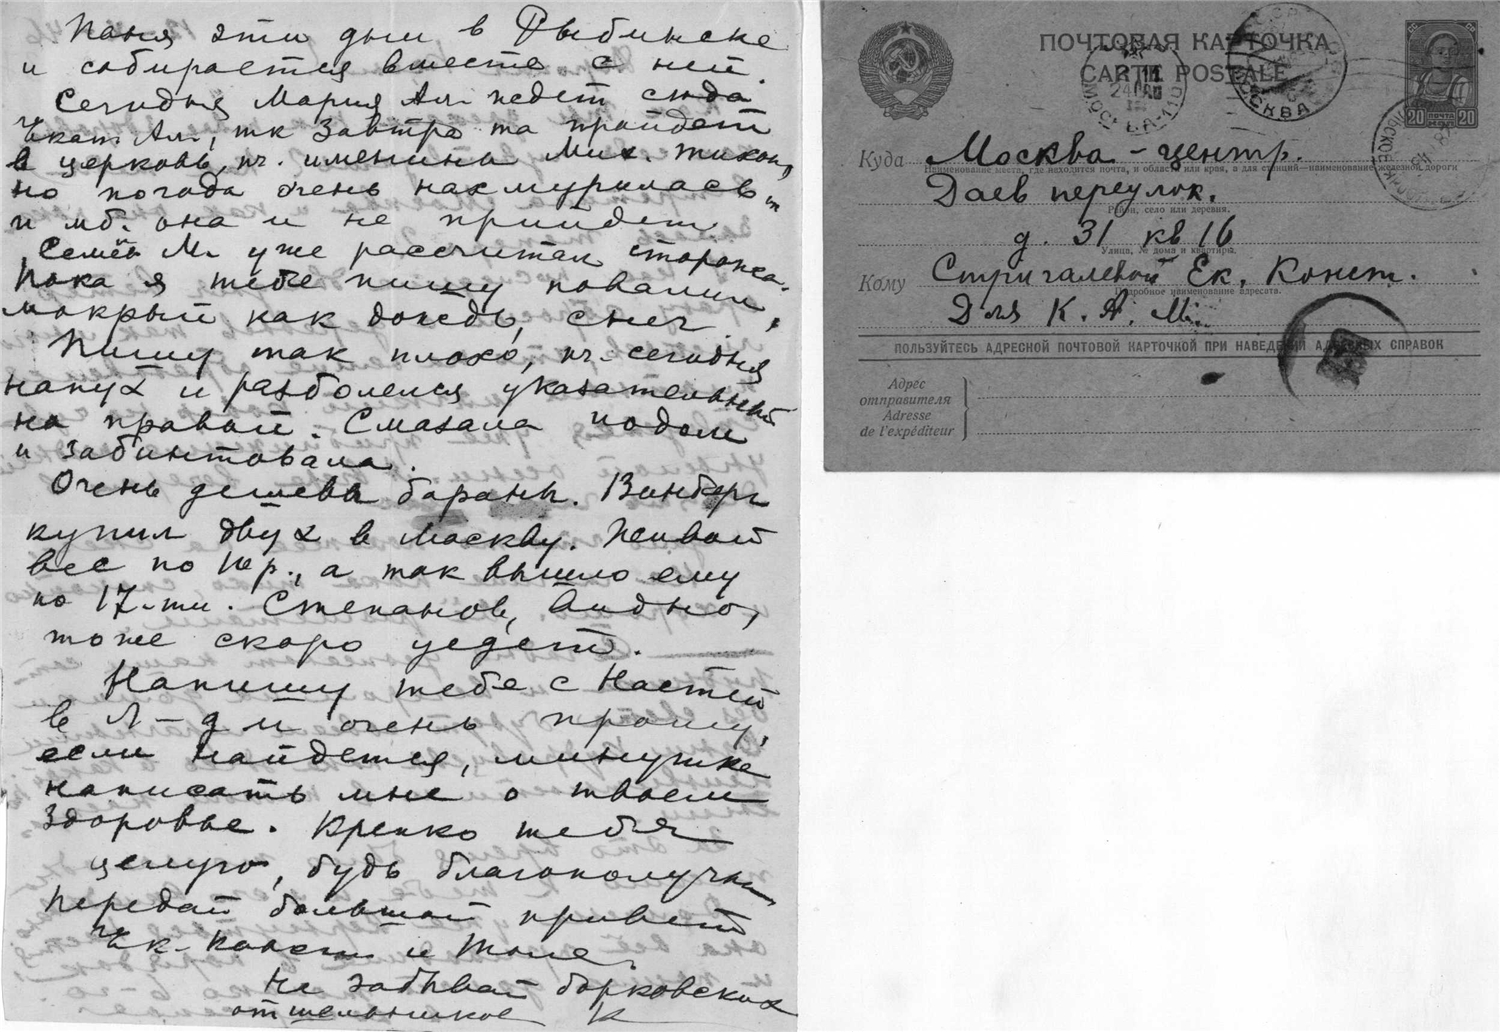 Паня эти дни в Рыбинске
и собирается вместе с ней.
Сегодня Мария Ал. ждет сюда
Екат. Ал., тк завтра та пройдет
в церковь, пч. именины Мих. Тихон,
но погода очень нахмурилась
и мб. она и не прийдет.
Семён М. уже рассчитал сторожа.
Пока я тебе пишу повалил,
мокрый как дождь, снег.
Пишу так плохо, пч. сегодня
напух и разболелся указательный
на правой. Смазала иодом
и забинтовала.
Очень дешевы бараны. Винберг
купил двух в Москву. Живой
вес по 10 р., а так вышло ему
по 17-ти. Степанов, видно,
тоже скоро уедет.
Напишу тебе с Настей
в Л-д и очень прошу,
если найдется, минутке
написать мне о твоем
здоровье. Крепко тебя
целую, будь благополучна,
передай большой привет
Ек. Конст и Тоне.
Не забывай борковских
отшельников К
ПОЧТОВАЯ КАРТОЧКА
CARTE POSTALE
МОСКВА
20 ПОЧТА 20
КОП
Куда Москва – центр.
Наименование места, где находится почта, и области или края, а для станций—наименование железной дороги
Даев переулок.
Район, село или деревня.
д. 31 кв 16
Улица, № дома и квартиры.
Кому Стригалевой Ек. Конст.
Подробное наименование адресата.
Для К. А. М
ПОЛЬЗУЙТЕСЬ АДРЕСНОЙ ПОЧТОВОЙ КАРТОЧКОЙ ПРИ НАВЕДЕНИИ АДРЕСНЫХ СПРАВОК
Адрес
отправителя
Adresse
de l'expéditeur